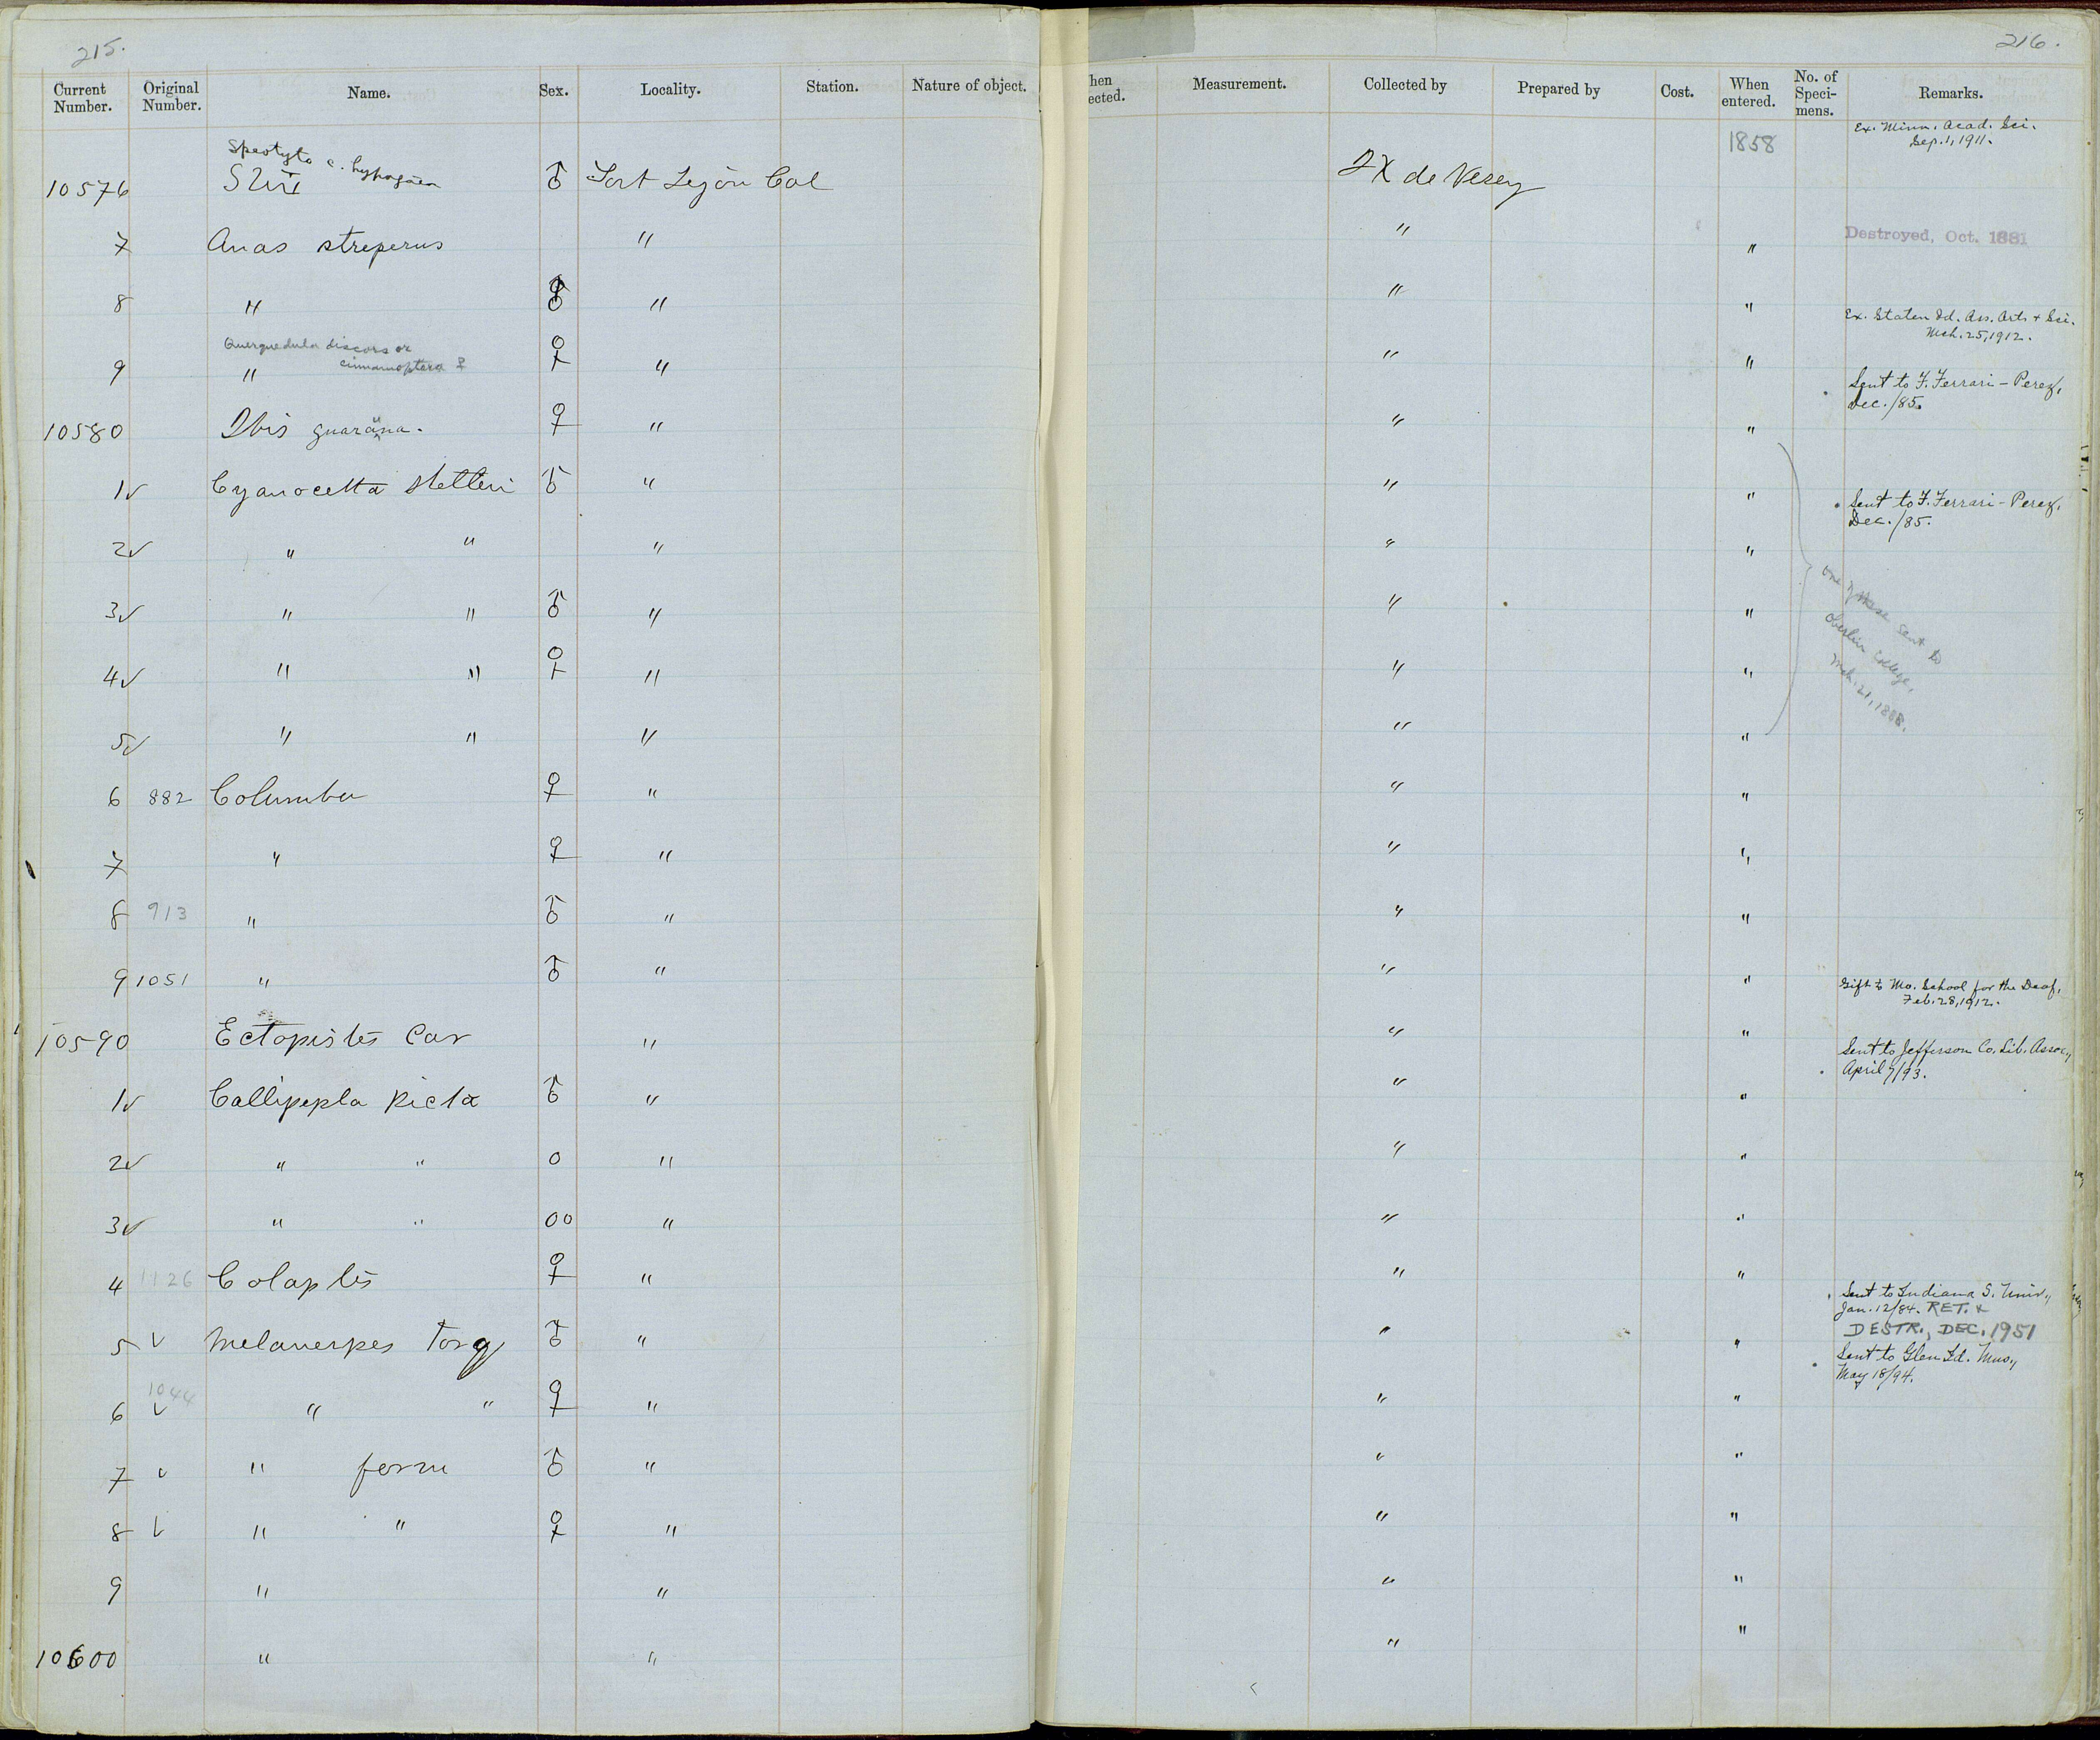 215.
216.
Current Number. Original Number. Name. Sex. Locality. Station. Nature of object. hen ected. Measurement. Collected by Prepared by Cost. When entered. No. of Speci-mens. Remarks.
Ex. Minn. Acad. Sci.
Sep. 1, 1911.
Speotyto c. hypogaea
10576 Strix ♂ Fort Tejon Cal de Vesey 1858
7 Anas streperus " " " Destroyed, Oct. 1881
8 " ♂ " " "
Ex. Staten Id. Ass. Arts & Sci.
Mch. 25, 1912.
Querquedula discors or
cinnamoptera ♀
9 " ♀ " " "
Sent to F. Ferrari-Perez,
Dec./85.
10580 Ibis guarauna. ♀ " " "
1✓ Cyanocetta stelleri ♂ " " "
Sent to F. Ferrari-Perez,
Dec./85.
2✓ " " " " "
3✓ " " ♂ " " "
one of these sent to
Oberlin College,
Mch. 21, 1888.
4✓ " " ♀ " " "
5✓ " " " " "
6 882 Columba ♀ " " "
7 " ♀ " " "
8 913 " ♂ " " "
9 1051 " ♂ " " "
Gift to Mo. School for the Deaf,
Feb. 28, 1912.
10590 Ectopistes Car " " "
Sent to Jefferson Co. Lib. Assoc.,
April 7/93.
1✓ Callipepla picta ♂ " " "
2✓ " " o " " "
3✓ " " oo " " "
4 1126 Colaptes ♀ " " "
Sent to Indiana S. Univ.,
Jan. 12/84. RET. &
DESTR., DEC. 1951
5 ✓ Melanerpes torq ♂ " " "
Sent to Glen Id. Mus.,
May 18/94.
1044
6 ✓ " " ♀ " " "
7 ✓ " form ♂ " " "
8 ✓ " " ♀ " " "
9 " " " "
10600 " " " "